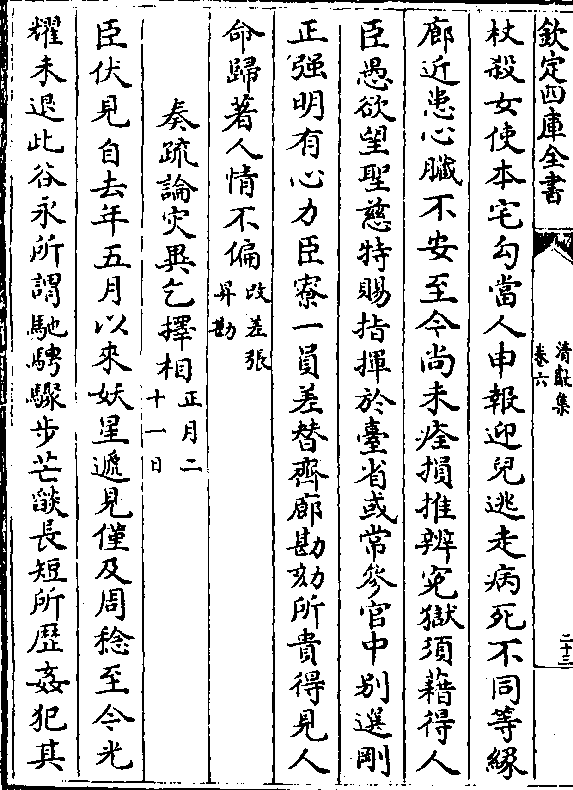 欽定四庫全書
清獻集
卷六
二十三
杖殺女使本宅勾當人申報迎兒逃走病死不同等緣
廊近患心臟不安至今尚未痊損推辨寃獄須藉得人
臣愚欲望聖慈特賜指揮於臺省或常參官中别選剛
正强明有心力臣寮一員差替齊廓勘劾所貴得見人
命歸著人情不偏改差張
昇勘
奏疏論灾異乞擇相正月二
十一日
臣伏見自去年五月以來妖星遞見僅及周稔至今光
耀未退此谷永所謂馳騁驟步芒燄長短所歴姦犯其